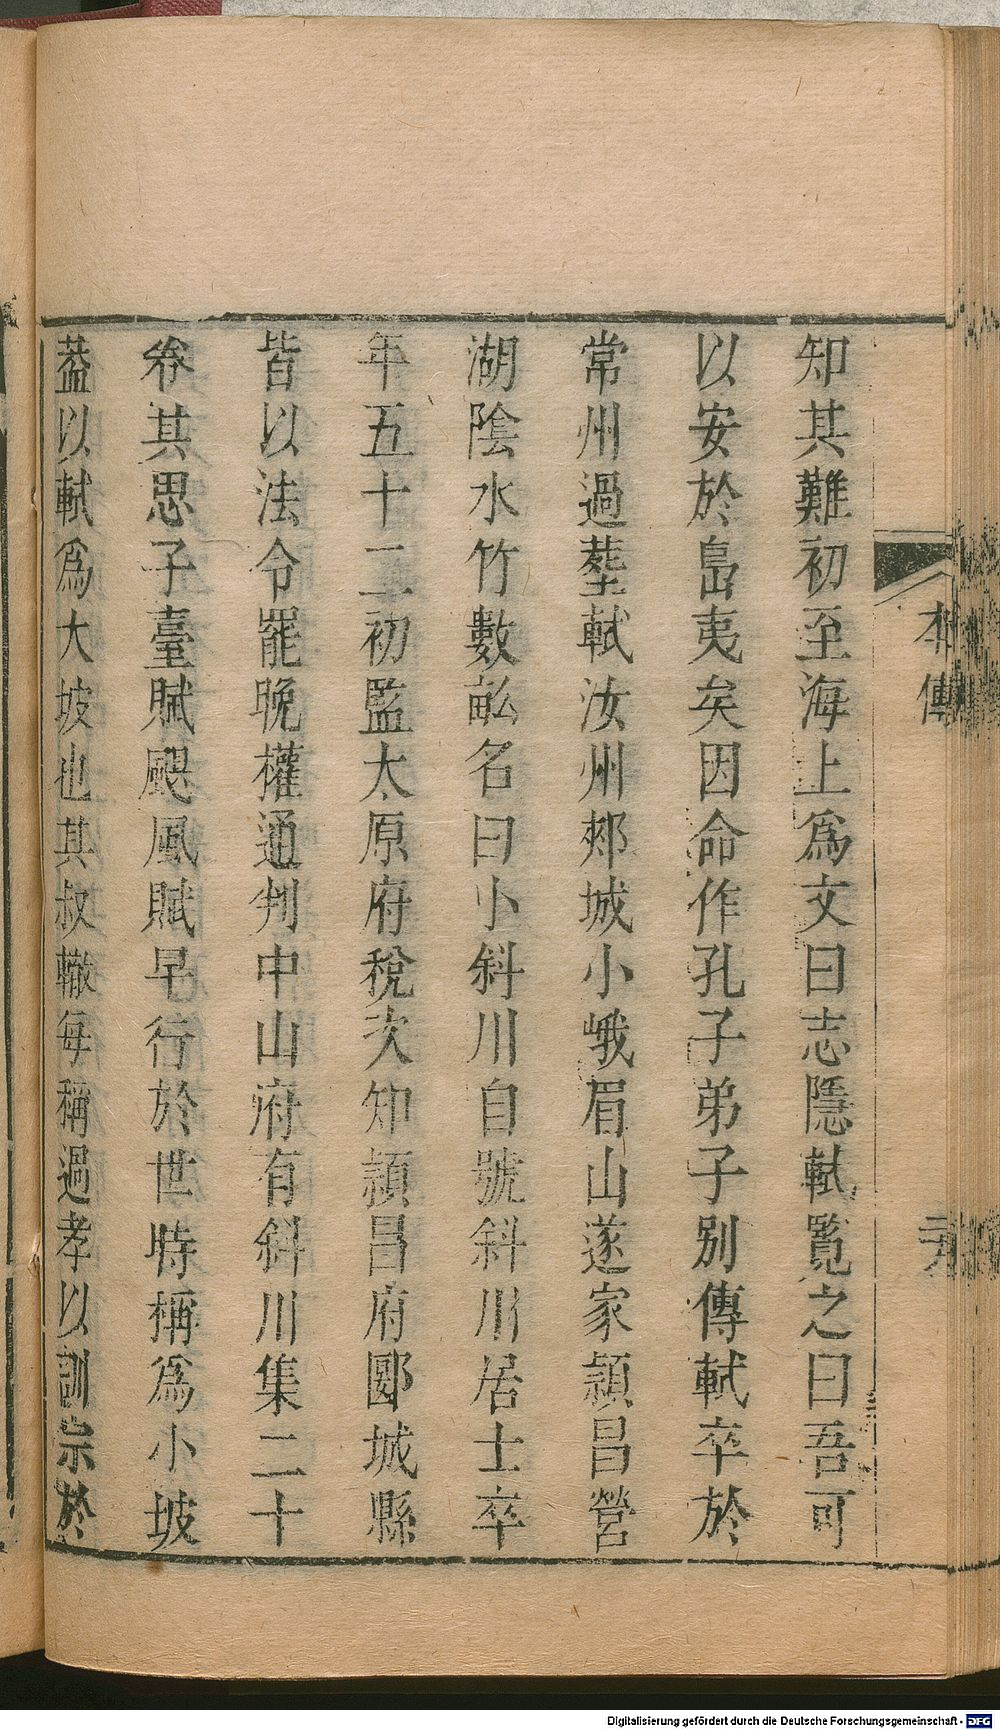 本傳
知其難初至海上爲文曰志隱軾覧之曰吾可
以安於島夷矣因命作孔子弟子別傳軾卒於
常州過塟軾汝州郟城小峨眉山遂家潁昌營
湖陰水竹數畝名曰小斜川自號斜川居士卒
年五十二初監太原府稅次知潁昌府郾城縣
皆以法令罷晚權通判中山府有斜川集二十
卷其思子臺賦颶風賦早行於世時稱爲小坡
葢以軾爲大坡也其叔轍每稱過孝以訓宗於
Digitalisierung gefördert durch die Deutsche Forschungsgemeinschaft - DFG